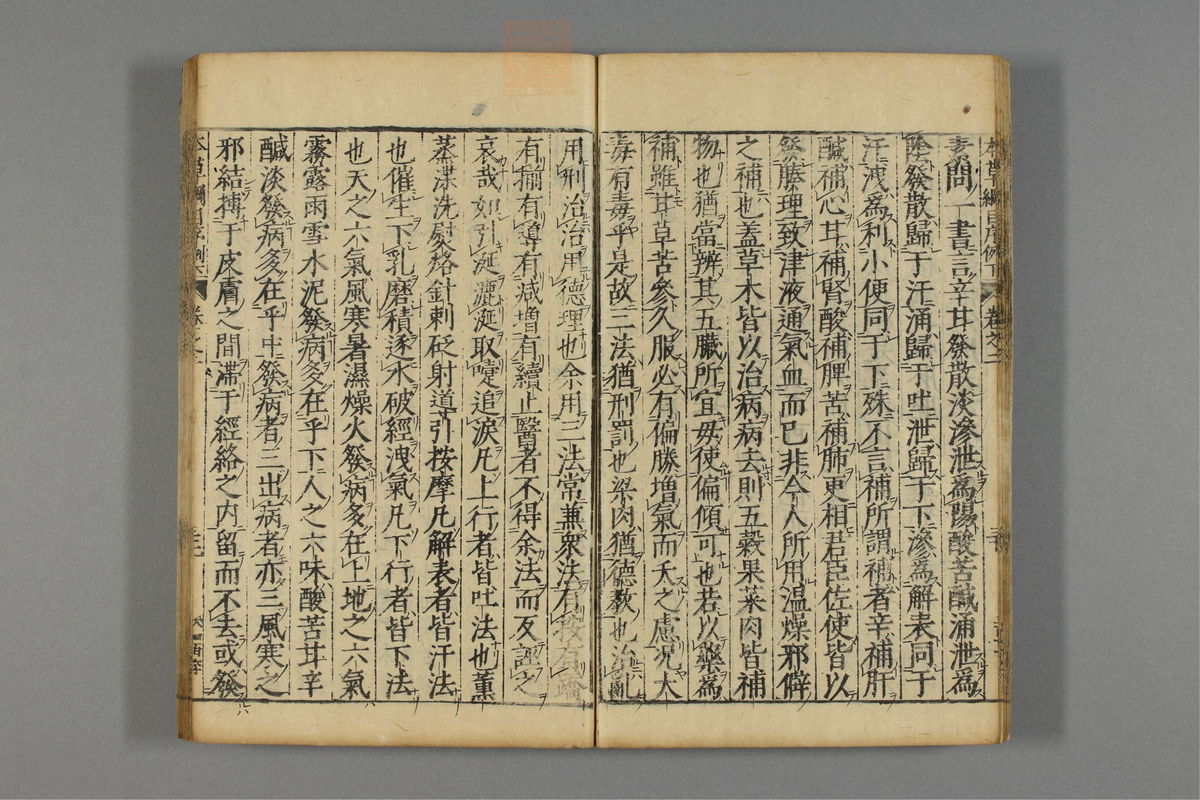 素問一書言辛甘發散淡滲泄爲陽酸苦鹹涌泄爲
陰發散歸于汗涌歸于吐泄歸于下滲爲解表同于
汗洩爲利小便同于下殊不言補所謂補者辛補肝
鹹補心甘補腎酸補脾苦補肺更相君臣佐使皆以
發腠理致津液通氣血而已非今人所用温燥邪僻
之補也蓋草木皆以治病病去則五穀果菜肉皆補
物也猶當辨其五臟所宜毋使偏傾可也若以藥爲
補雖甘草苦參久服必有偏勝增氣而夭之慮况大
毒有毒乎是故三法猶刑罰也梁肉猶德教也治亂
用刑治治用德理也余用三法常兼衆法有按有蹻
有揃有導有减增有續止醫者不得余法而反誣之
哀哉如引涎漉涎取嚏追淚凡上行者皆吐法也薰
蒸渫洗熨烙針刺砭射道引按摩凡解表者皆汗法
也催生下乳磨積逐水破經洩氣凡下行者皆下法
也天之六氣風寒暑濕燥火發病多在上地之六氣
霧露雨雪水泥發病多在乎下人之六味酸苦甘辛
鹹淡發病多在乎中發病者三出病者亦三風寒之
邪結搏于皮膚之間滯于經絡之内留而不去或發